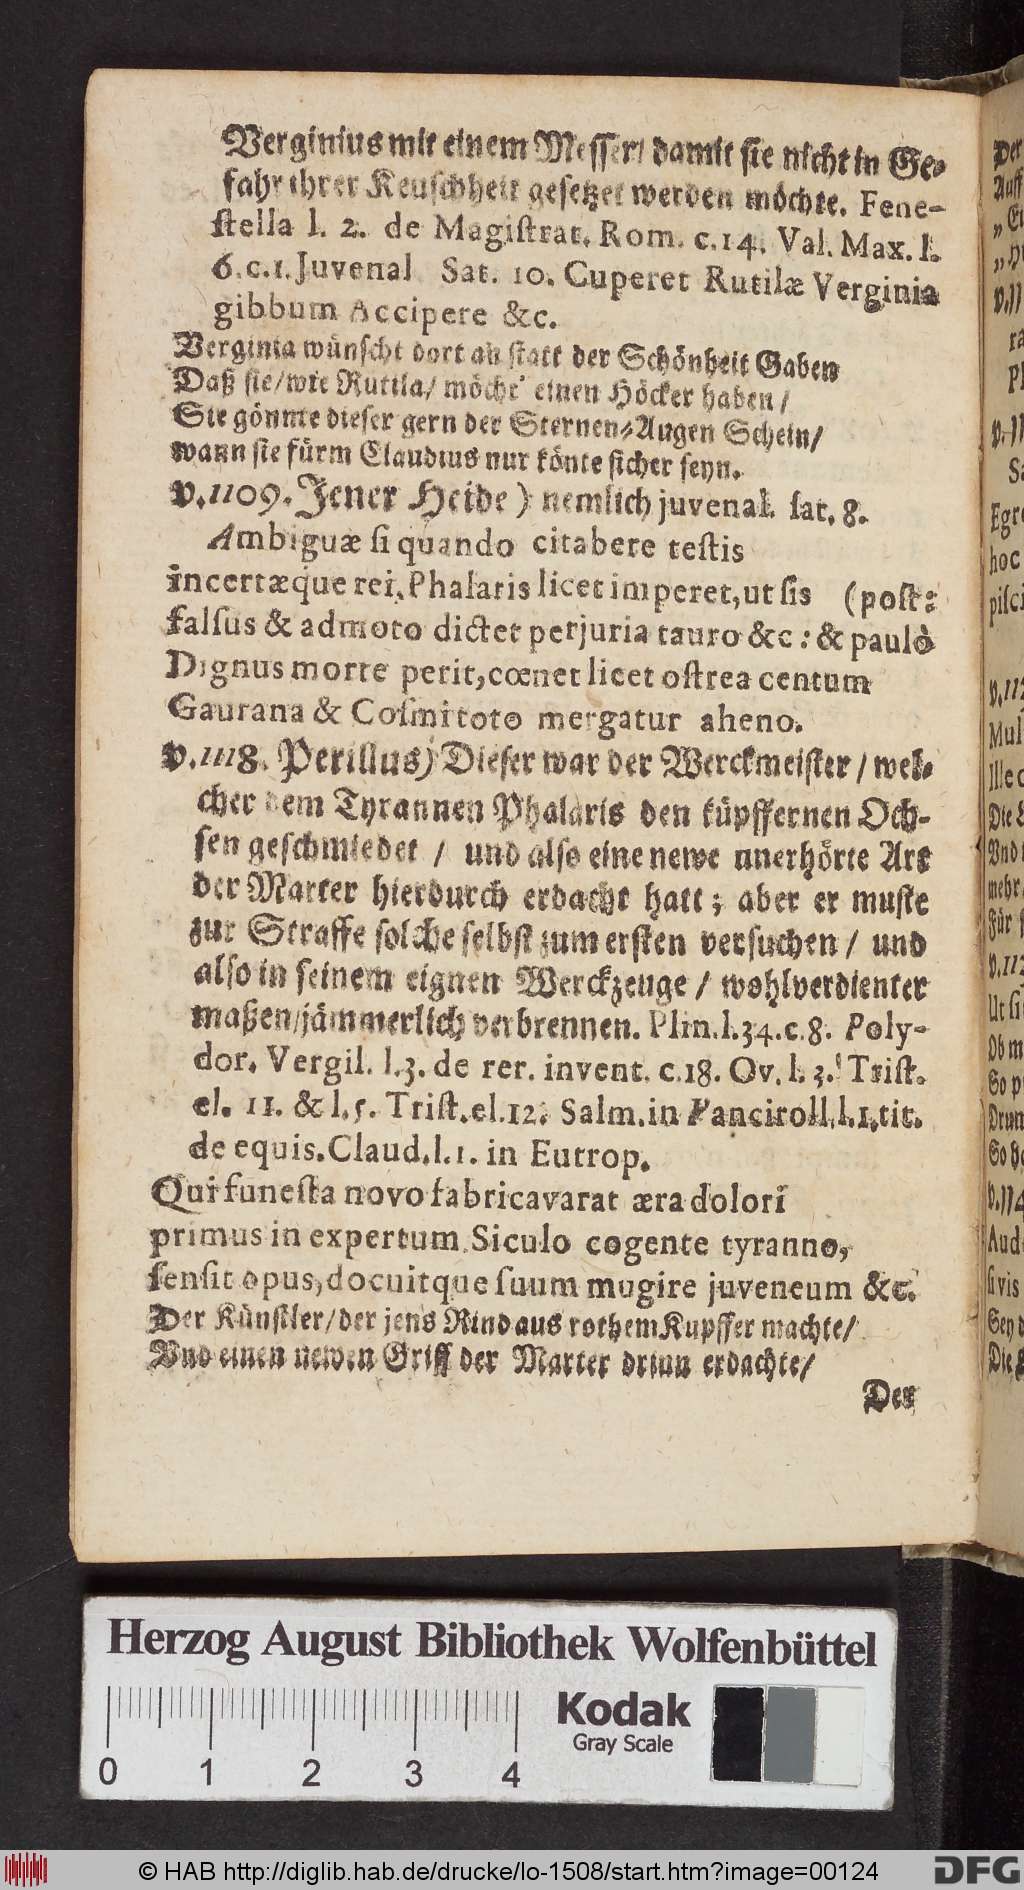 Verginius mit einem Messer/ damit sie nicht in Ge-
fahr ihrer Keuschheit gesetzet werden möchte. Fene-
ſtella l. 2. de Magiſtrat. Rom. c. 14. Val. Max. l.
6. c. 1. Juvenal Sat. 10. Cuperet Rutilæ Verginia
gibbum Accipere &c.
Verginia wünscht dort an statt der Schönheit Gaben
Daß sie/ wie Rutila/ möcht' einen Höcker haben/
Sie gönnte dieser gern der Sternen-Augen Schein/
wann sie fürm Claudius nur könte sicher seyn.
v. 1109. Jener Heide) nemlich juvenal. ſat. 8.
Ambiguæ ſi quando citabere teſtis
incertæque rei, Phalaris licet imperet, ut ſis (poſt:
falſus & admoto dictet perjuria tauro &c: & paulò
Dignus morte perit, cœnet licet oſtrea centum
Gaurana & Coſmi toto mergatur aheno.
v. 1118. Perillus) Dieser war der Werckmeister / wel-
cher dem Tyrannen Phalaris den küpffernen Och-
sen geschmiedet / und also eine newe unerhörte Art
der Marter hierdurch erdacht hatt; aber er muste
zur Straffe solche selbst zum ersten versuchen / und
also in seinem eignen Werckzeuge / wohlverdienter
maßen/ jämmerlich verbrennen. Plin. l. 34. c. 8. Poly-
dor. Vergil. l. 3. de rer. invent. c. 18. Ov. l. 3. Triſt.
el. 11. & l. 5. Triſt. el. 12. Salm. in Panciroll. l. 1. tit.
de equis. Claud. l. 1. in Eutrop.
Qui funeſta novo fabricavarat æra dolori
primus in expertum Siculo cogente tyranno,
ſenſit opus, docuitque ſuum mugire juveneum &c.
Der Künstler/ der jens Rind aus rothem Kupffer machte/
Vnd einen newen Griff der Marter drinn erdachte/
Der
Herzog August Bibliothek Wolfenbüttel
Kodak
Gray Scale
0 1 2 3 4
© HAB http://diglib.hab.de/drucke/lo-1508/start.htm?image=00124
DFG